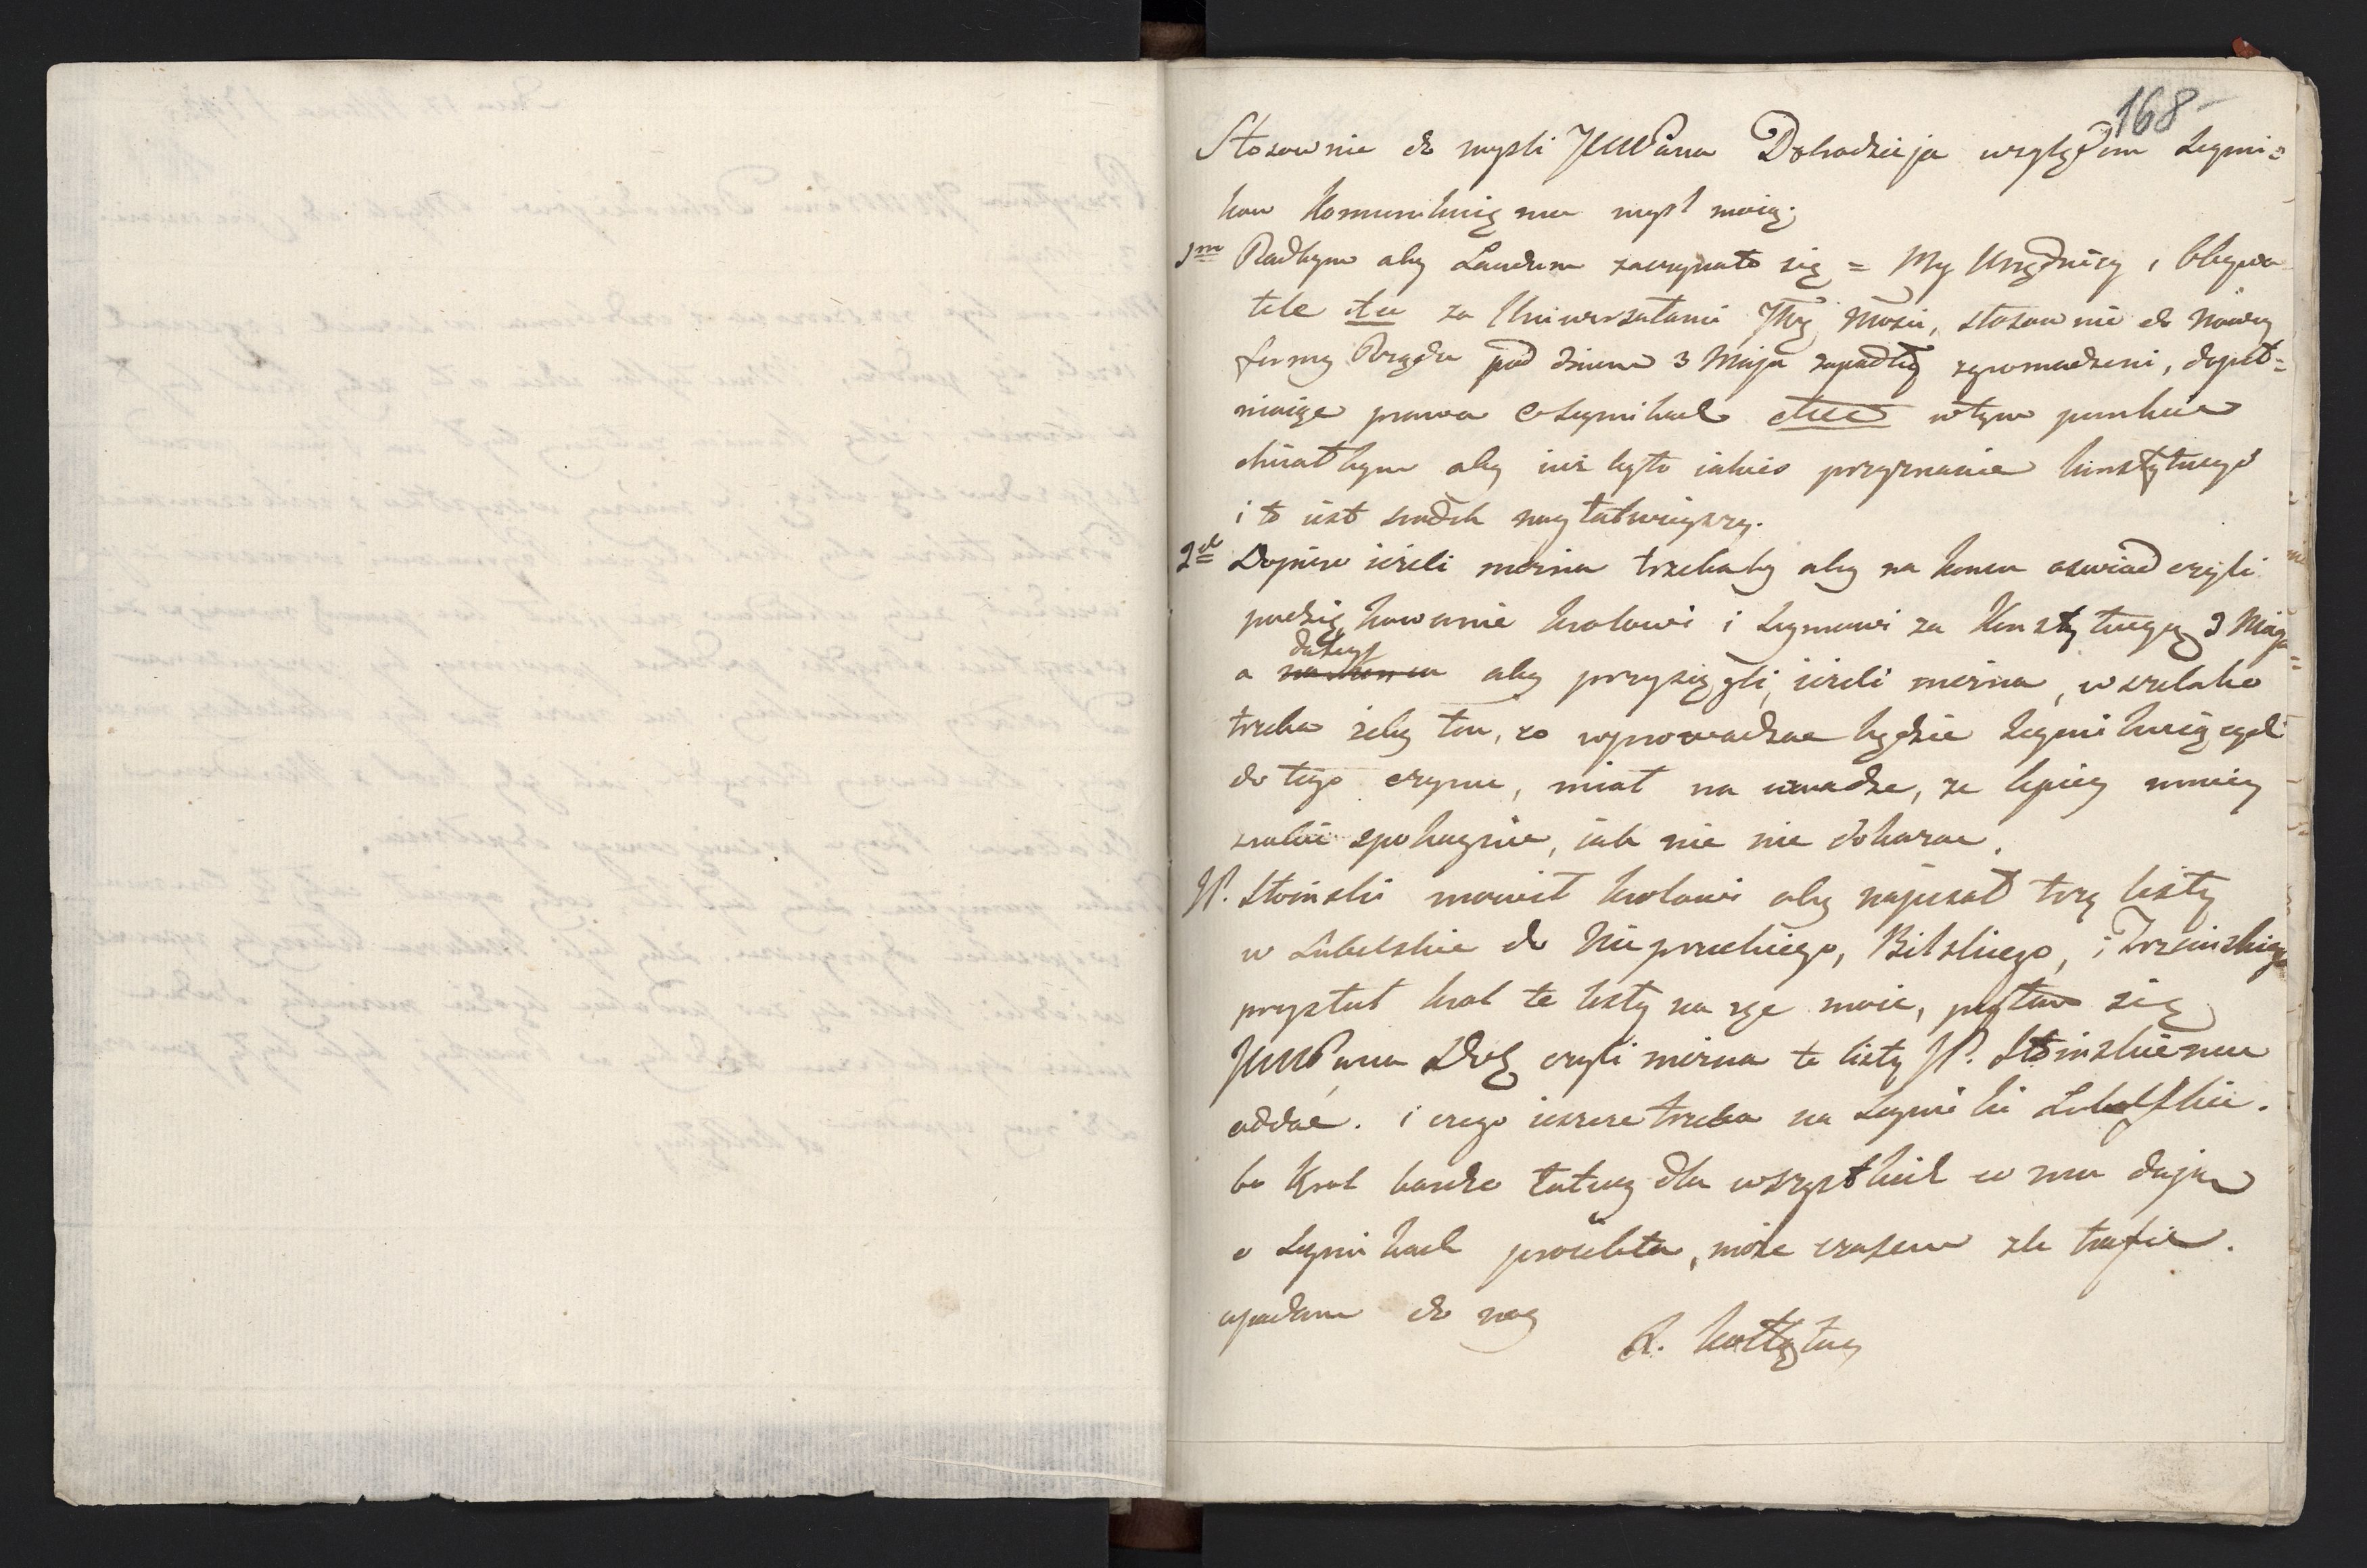 168
Stosownie do mysli JWWPana Dobrodzieja względem Seymi=
kow Komunikuię mu mysl moią;
1mo Radbym aby Laudum zaczynało się = My Urzędnicy i Obywa
tele etc za Uniwersałami JKrg Mosci, stosownie do Nowey
formy Rządu pod dniem 3 Maja zapadłey zgromadzeni, dopeł=
niaiąc prawa o Seymikach etcc w tym punkcie
chciałbym aby iuż było iakieś przyznanie konstytucyi
i to iest srodek nayłatwieyszy.
2do Dopiero ieżeli można trzebaby aby na koncu oswiadczyli
podziękowanie krolowi i Seymowi za Konstytucyą 3 Maja
daley
a na koncu aby przysięgli, ieżeli można, wszelako
trzeba żeby ten, co wprowadzac będzie Seymikuiących
do tego czynu, miał na uwadze, ze lepiey mniey
zrobić spokoynie, iak nic nie dokazac.
JP. Stoinski mowił krolowi aby napisał trzy listy
w Lubelskie do Nieprzeckiego, Bilskiego, i Trzcinskiego
przysłał krol te listy na ręce moie, pytam się
JWWPana Dobr czyli można te listy JP. Stoinskiemu
oddać. i czego ieszcze trzeba na Seymiki Lubelskie.
bo Krol bardzo łatwy dla wszystkich co mu daja
o Seymikach proiekta, może czasem zle trafić.
upadam do nog
X. Kołłątay